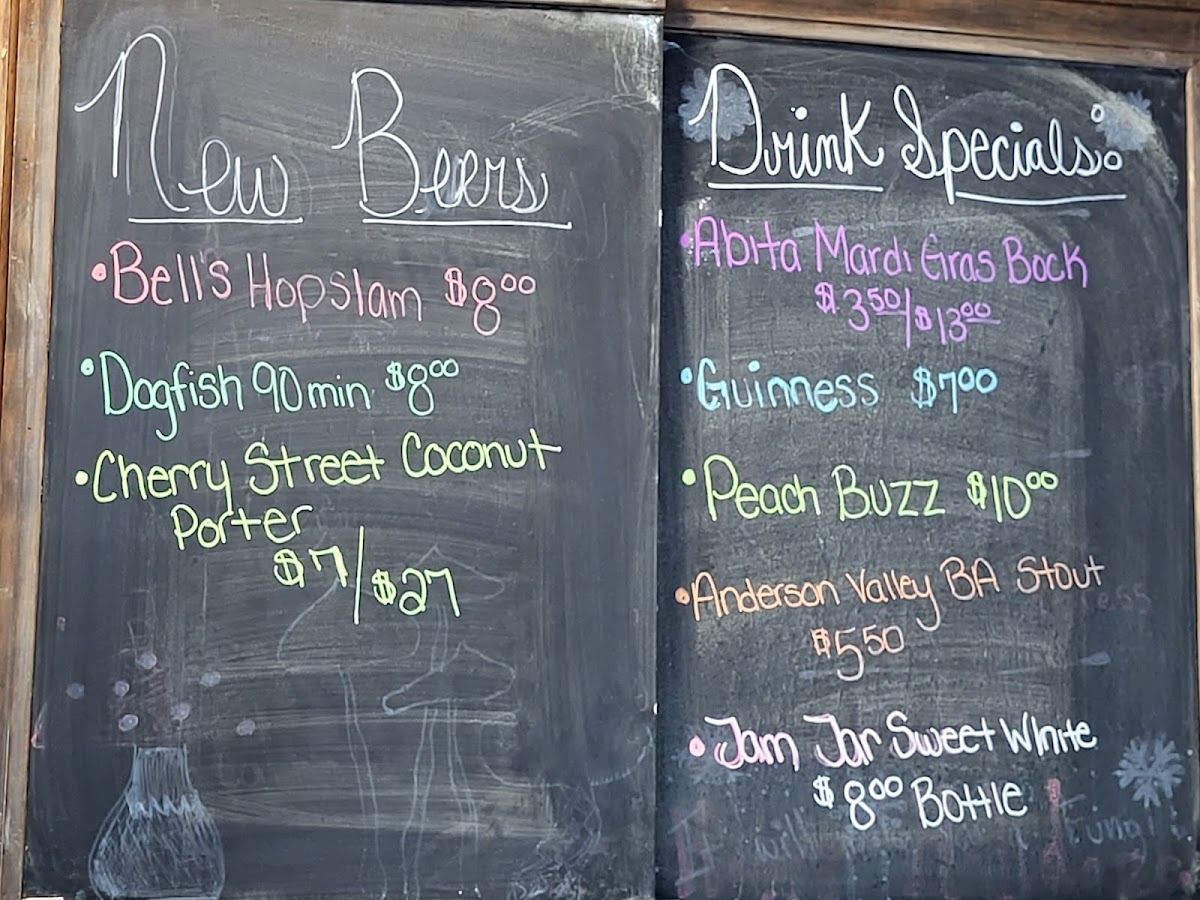 New Beers
• Bell's Hopslam $8.00
• Dogfish 90 min $8.00
• Cherry Street Coconut
Porter
$7/$27
Drink Specials:
• Abita Mardi Gras Bock
$3.50/$13.00
• Guinness $7.00
• Peach Buzz $10.00
• Anderson Valley BA Stout
$5.50
• Jam Jar Sweet White
$8.00 Bottle